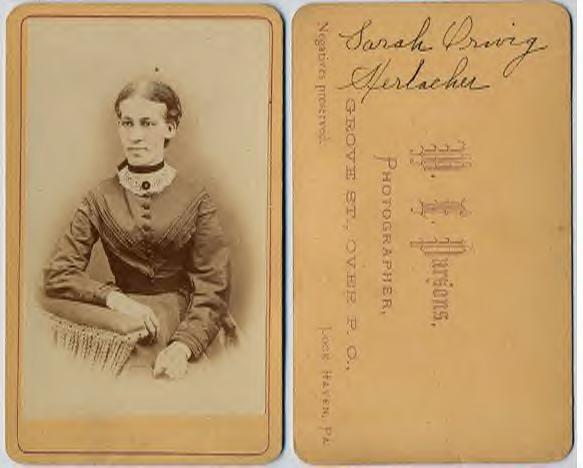 Sarah Orwig
Herlacher
W. C. Parsons,
PHOTOGRAPHER,
GROVE ST., OVER P. O.,
Negatives preserved.
LOCK HAVEN, PA